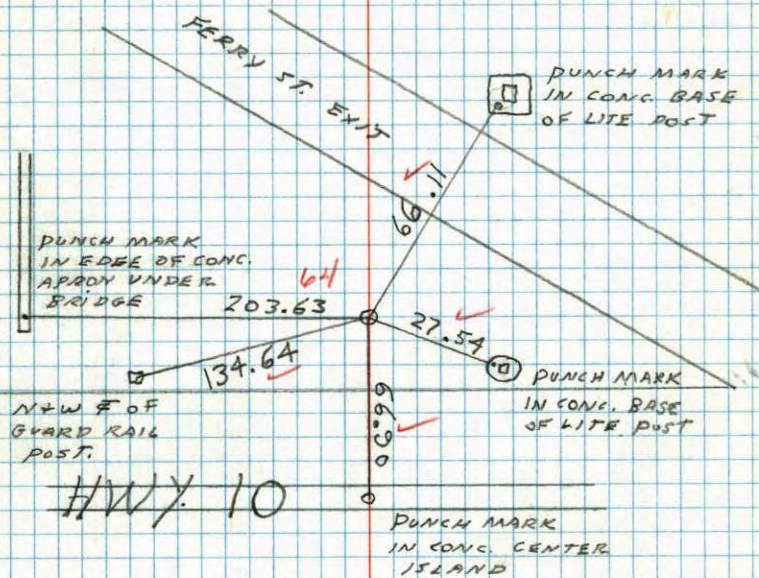 FERRY ST. EXIT
PUNCH MARK
IN CONC. BASE
OF LITE POST
99.11
PUNCH MARK
IN EDGE OF CONC.
APRON UNDER
BRIDGE
64
203.63
27.54
134.64
PUNCH MARK
IN CONC. BASE
OF LITE POST
N+W
OF
GUARD RAIL
POST.
HWY. 10
PUNCH MARK
IN CONC. CENTER
ISLAND